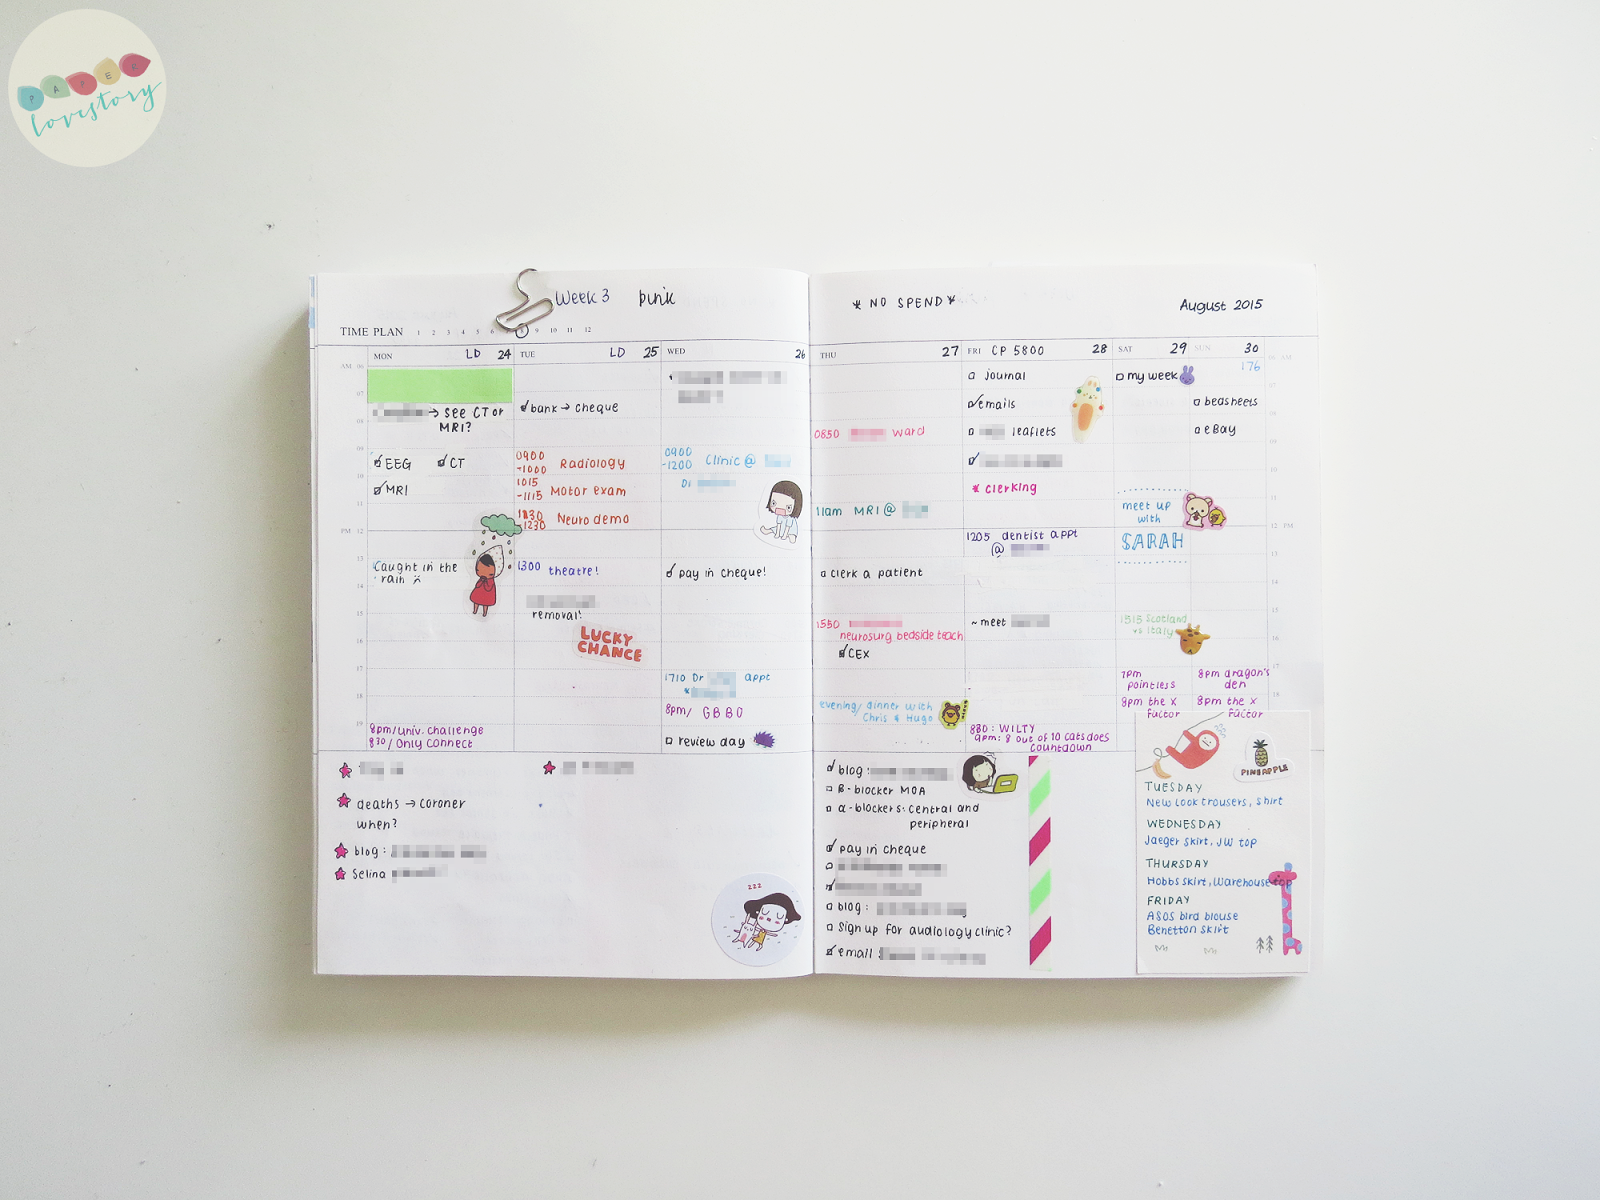 PAPER
lovestory
Week 3
* NO SPEND *
August 2015
TIME PLAN 1 2 3 4 5 6 7 8 9 10 11 12
MON LD 24
→ See CT or
MRI?
EEG CT
MRI
Caught in the
rain
8pm/univ. challenge
830/Only Connect
TUE LD 25
bank → cheque
0900
-1000 Radiology
1015
-1115 Motor exam
1130
-1230 Neuro demo
1300 theatre!
removal!
LUCKY
CHANCE
WED 26
0900
-1200 Clinic @
Dr
pay in cheque!
1710 Dr appt
8pm/ GBBO
review day
THU 27
0850 ward
11am MRI @
clerk a patient
1550
neurosurg. bedside teach
CEX
evening/dinner with
Chris & Hugo
FRI CP 5800 28
journal
emails
leaflets
* clerking
1205 dentist appt
@
~ meet
830: WILTY
9pm: 8 out of 10 cats does
countdown
SAT 29
my week
meet up
with
SARAH
1515 Scotland
vs Italy
7pm
pointless
8pm the X
factor
SUN 30
176
bedsheets
eBay
8pm dragon's
den
8pm the X
factor
AM 06
07
08
09
10
11
PM 12
13
14
15
16
17
18
19
deaths → coroner
when?
blog:
Selina
zzz
blog:
β-blocker MOA
α-blockers: central and
peripheral
pay in cheque
blog:
Sign up for audiology clinic?
email
PINEAPPLE
TUESDAY
New Look trousers, shirt
WEDNESDAY
Jaeger skirt, JW top
THURSDAY
Hobbs skirt, Warehouse top
FRIDAY
ASOS bird blouse
Benetton skirt